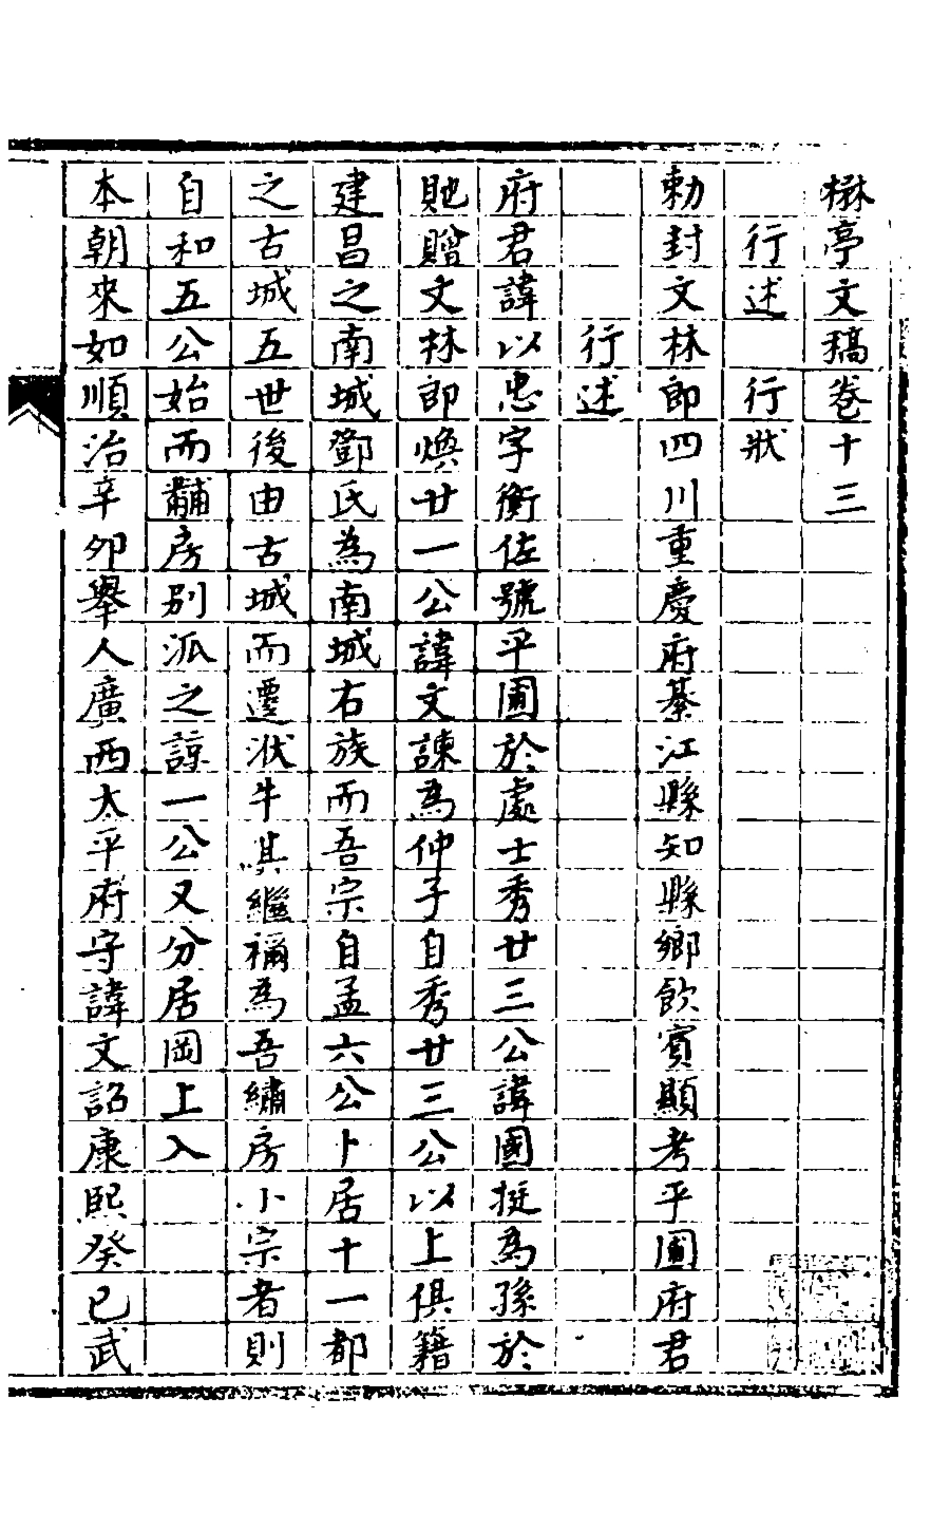 楙亭文稿卷十三
行述 行狀
勅封文林郎四川重慶府綦江縣知縣鄉飲賓顯考平圃府君
行述
府君諱以忠字衡佐號平圃於處士秀廿三公諱國挺為孫於
貤贈文林郎煥廿一公諱文諫為仲子自秀廿三公以上俱籍
建昌之南城鄧氏為南城右族而吾宗自孟六公卜居十一都
之古城五世後由古城而遷洑牛其繼禰為吾繡房小宗者則
自和五公始而黼房別派之諒一公又分居岡上入
本朝來如順治辛卯舉人廣西太平府守諱文詔康熙癸巳武